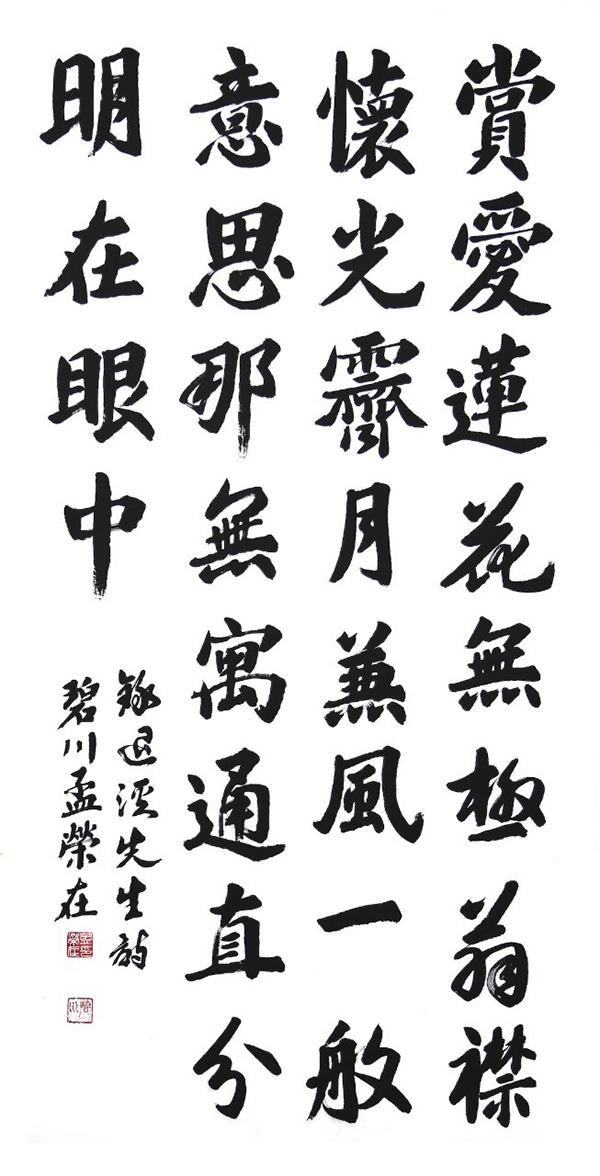 賞愛蓮花無極翁襟
懷光霽月兼風一般
意思那無寓通直分
明在眼中
錄退溪先生詩
碧川孟榮在